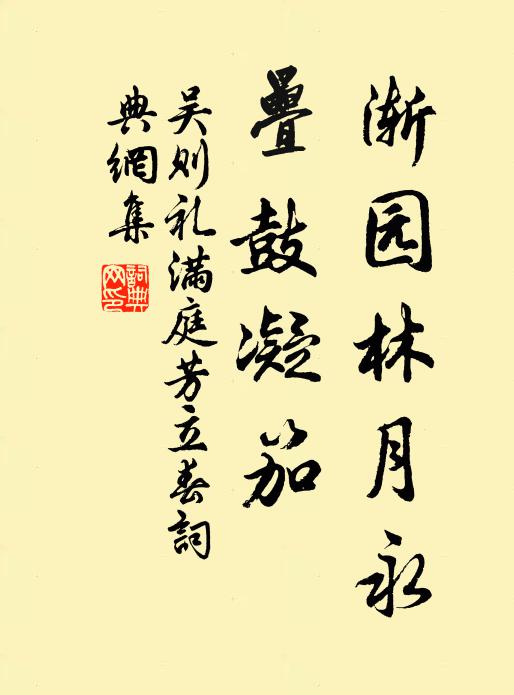 渐园林月永
疊鼓凝笳
吴则礼满庭芳立春詞
典網集
詞典网印